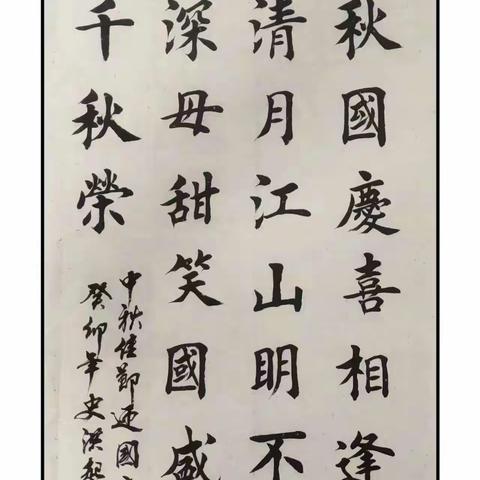 秋國慶喜相逢
清月江山明不
深母甜笑國盛
千秋榮
中秋佳節迎國
癸卯年史洪